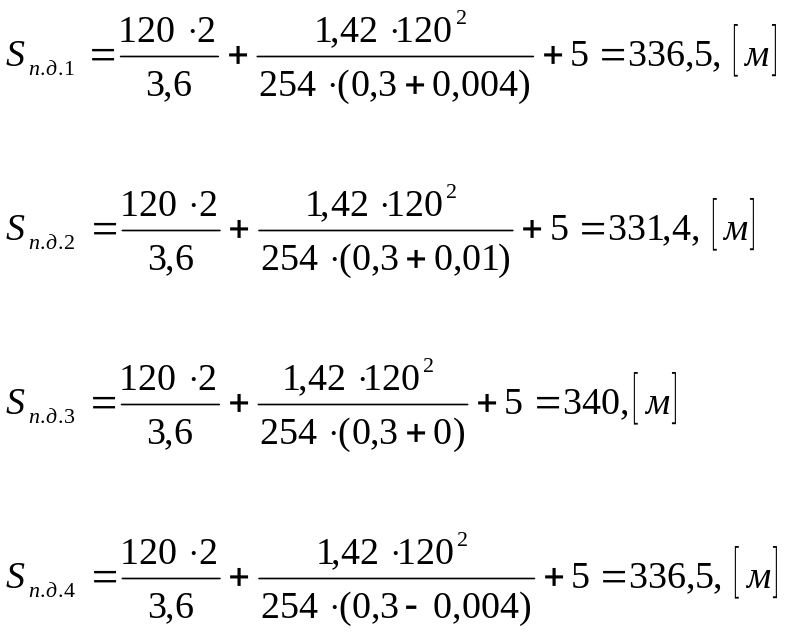 S п.д.1 = 120 · 2 / 3,6 + 1,42 · 120² / 254 · (0,3 + 0,004) + 5 = 336,5, [м]
S п.д.2 = 120 · 2 / 3,6 + 1,42 · 120² / 254 · (0,3 + 0,01) + 5 = 331,4, [м]
S п.д.3 = 120 · 2 / 3,6 + 1,42 · 120² / 254 · (0,3 + 0) + 5 = 340, [м]
S п.д.4 = 120 · 2 / 3,6 + 1,42 · 120² / 254 · (0,3 - 0,004) + 5 = 336,5, [м]